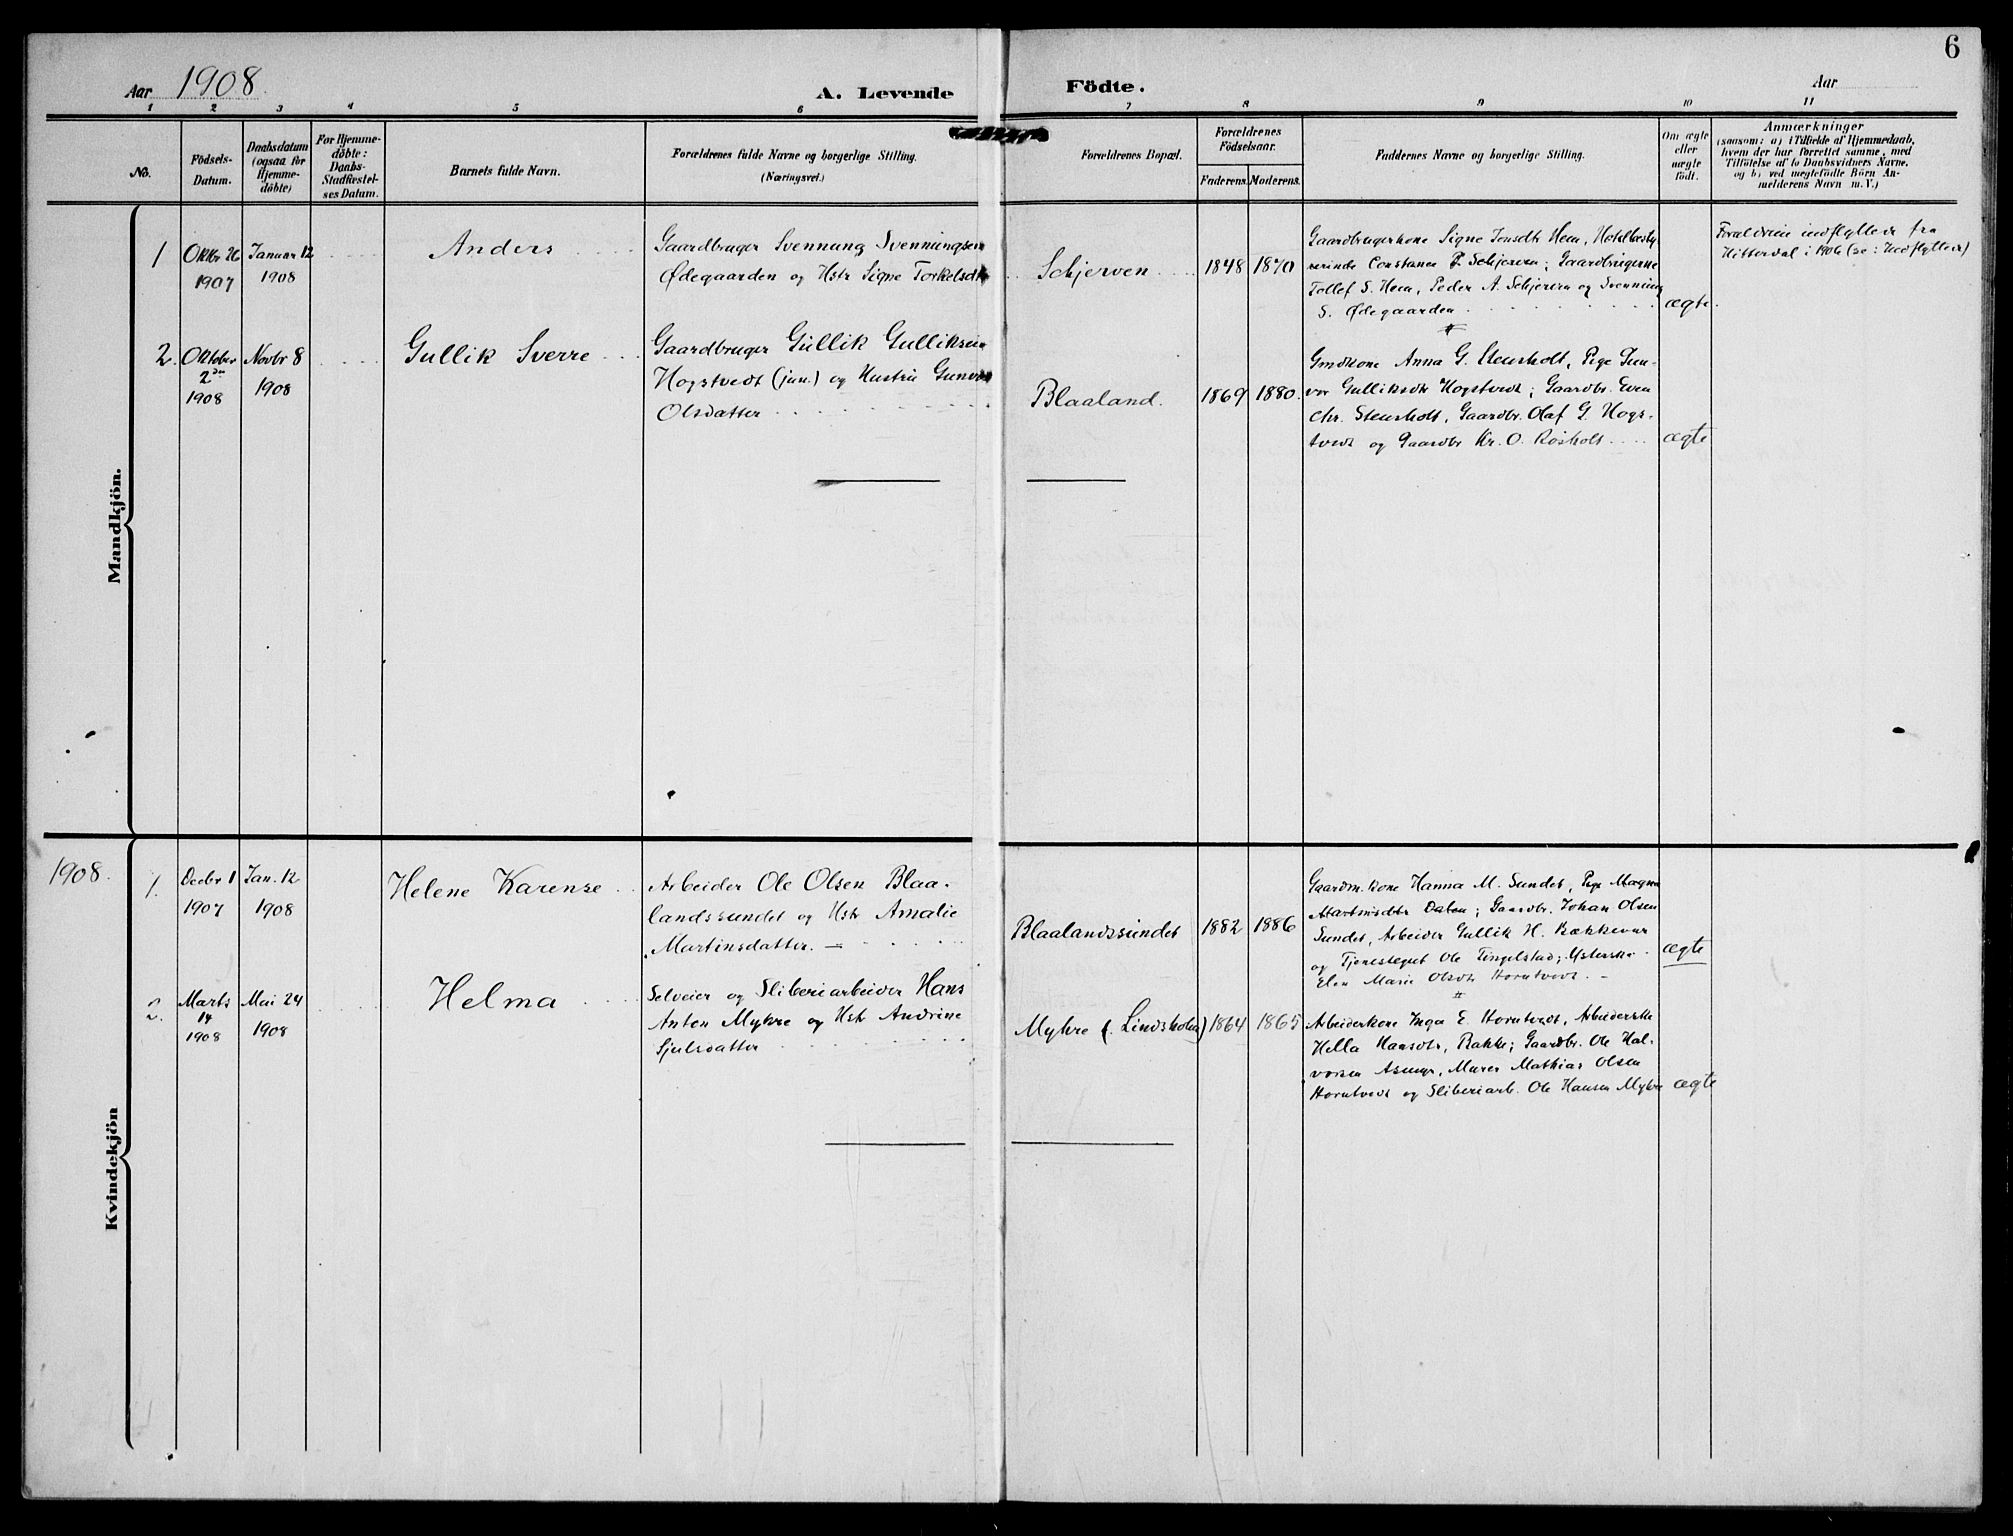 6
Aar 1908
A. Levende Födte.
Aar
1 2 3 4 5 6 7 8 9 10 11
No.
Födsels-
Datum.
Daabsdatum
(ogsaa for
Hjemme-
döbte)
For Hjemme-
döbte:
Daabs-
Stadfæstel-
ses Datum.
Barnets fulde Navn.
Forældrenes fulde Navne og borgerlige Stilling.
(Næringsvei.)
Forældrenes Bopæl.
Forældrenes
Födselsaar.
Faderens. Moderens.
Faddernes Navne og borgerlige Stilling.
Om ægte
eller
uægte
födt.
Anmærkninger
(saasom: a) i Tilfælde af Hjemmedaab,
hvem der har forrettet samme, med
Tilföielse af to Daabsvidners Navne,
og b) ved uægtefödte Börn An-
melderens Navn m. V.)
Mandkjön.
1
Oktbr 26
1907
Januar 12
1908
Anders
Gaardbruger Svennung Svennungsen
Ødegaarden og Hstr Signe Torkelsdtr
Schjerven
1848 1870
Gaardbrugerkone Signe Jensdtr Hem, Hotelbesty
rerinde Constance P. Schjerven; Gaardbrugerne
Tollef S. Hem, Peder A. Schjerven og Svennung
S. Ødegaarden
ægte.
Forældrene indflyttede fra
Hitterdal i 1906 (se: Indflyttede)
2.
Oktober
2den
1908
Novbr 8
1908
Gullik Sverre
Gaardbruger Gullik Gulliksen
Hogstvedt (jun.) og Hustru Gunvor
Olsdatter
Blaaland.
1869 1880.
Gmdkone Anna G. Stensholt, Pige Gun-
vor Gulliksdtr Hogstvedt; Gaardbr. Even
Chr. Stensholt, Gaardbr. Olaf G. Hogs-
tvedt og Gaardbr Kr. O. Rosholt
ægte
Kvindekjön
1908.
1.
Decbr 1
1907
Jan. 12
1908
Helene Karense
Arbeider Ole Olsen Blaa-
landssundet og Hstr Amalie
Martinsdatter.
Blaalandssundet
1882 1886
Gaardm.kone Hanna M. Sundet, Pige Magna
Martinsdtr Dalen; Gaardbr. Johan Olsen
Sundet, Arbeider Gullik H. Bækkevar
og Tjenestegut Ole Tingelstad;
Elen Marie Olsdtr Horntvedt.
ægte
2.
Marts
14
1908
Mai 24
1908
Helma
Selveier og Sliberiarbeider Hans
Anton Myhre og Hstr Andrine
Sjulsdatter
Myhre (Lindsholm)
1864 1865
Arbeiderkone Inga E. Horntvedt, Arbeiderske
Hella Hansdtr, Bakke; Gaardbr. Ole Hal-
vorsen Asmyr, Murer Mathias Olsen
Horntvedt og Sliberiarb. Ole Hansen Myhre
ægte